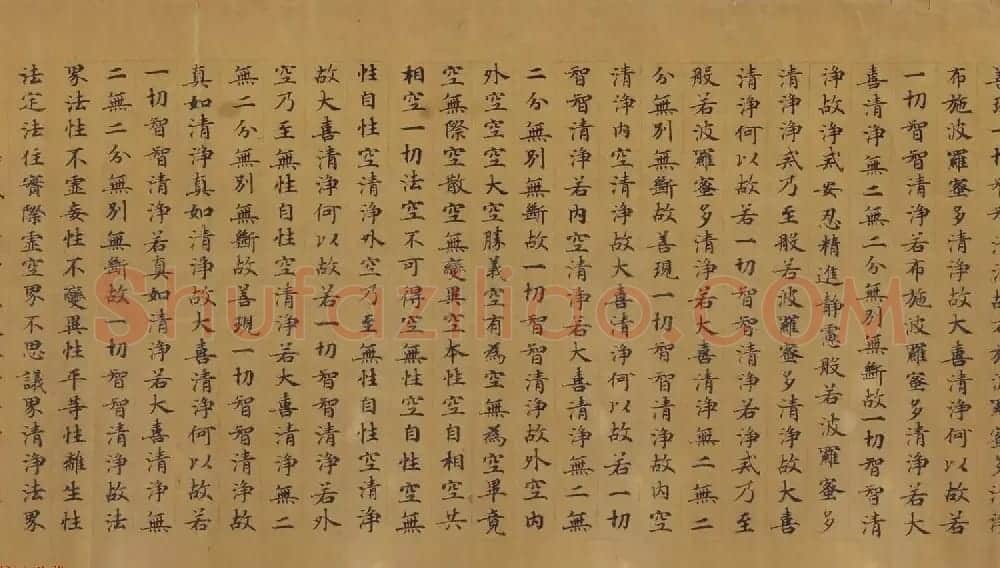 布施波羅蜜多清淨故大喜清淨何以故若
一切智智清淨若布施波羅蜜多清淨若大
喜清淨無二無二分無別無斷故一切智智清
淨故淨戒安忍精進靜慮般若波羅蜜多
清淨淨戒乃至般若波羅蜜多清淨故大喜
清淨何以故若一切智智清淨若淨戒乃至
般若波羅蜜多清淨若大喜清淨無二無二
分無別無斷故善現一切智智清淨故內空
清淨內空清淨故大喜清淨何以故若一切
智智清淨若內空清淨若大喜清淨無二無
二分無別無斷故一切智智清淨故外空內
外空空空大空勝義空有為空無為空畢竟
空無際空散空無變異空本性空自相空共
相空一切法空不可得空無性空自性空無
性自性空清淨外空乃至無性自性空清淨
故大喜清淨何以故若一切智智清淨若外
空乃至無性自性空清淨若大喜清淨無二
無二分無別無斷故善現一切智智清淨故
真如清淨真如清淨故大喜清淨何以故若
一切智智清淨若真如清淨若大喜清淨無
二無二分無別無斷故一切智智清淨故法
界法性不虛妄性不變異性平等性離生性
法定法住實際虛空界不思議界清淨法界
Shufaziliao.COM